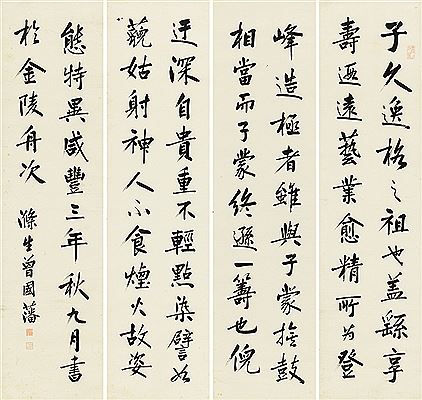 子久逸格之祖也蓋繇享
壽遐遠藝業愈精所為登
峰造極者雖與子蒙鼓
相當而子蒙終遜一籌也倪
迂深自貴重不輕點染譬如
藐姑射神人不食煙火故姿
態特異咸豐三年秋九月書
於金陵舟次 滌生曾國藩